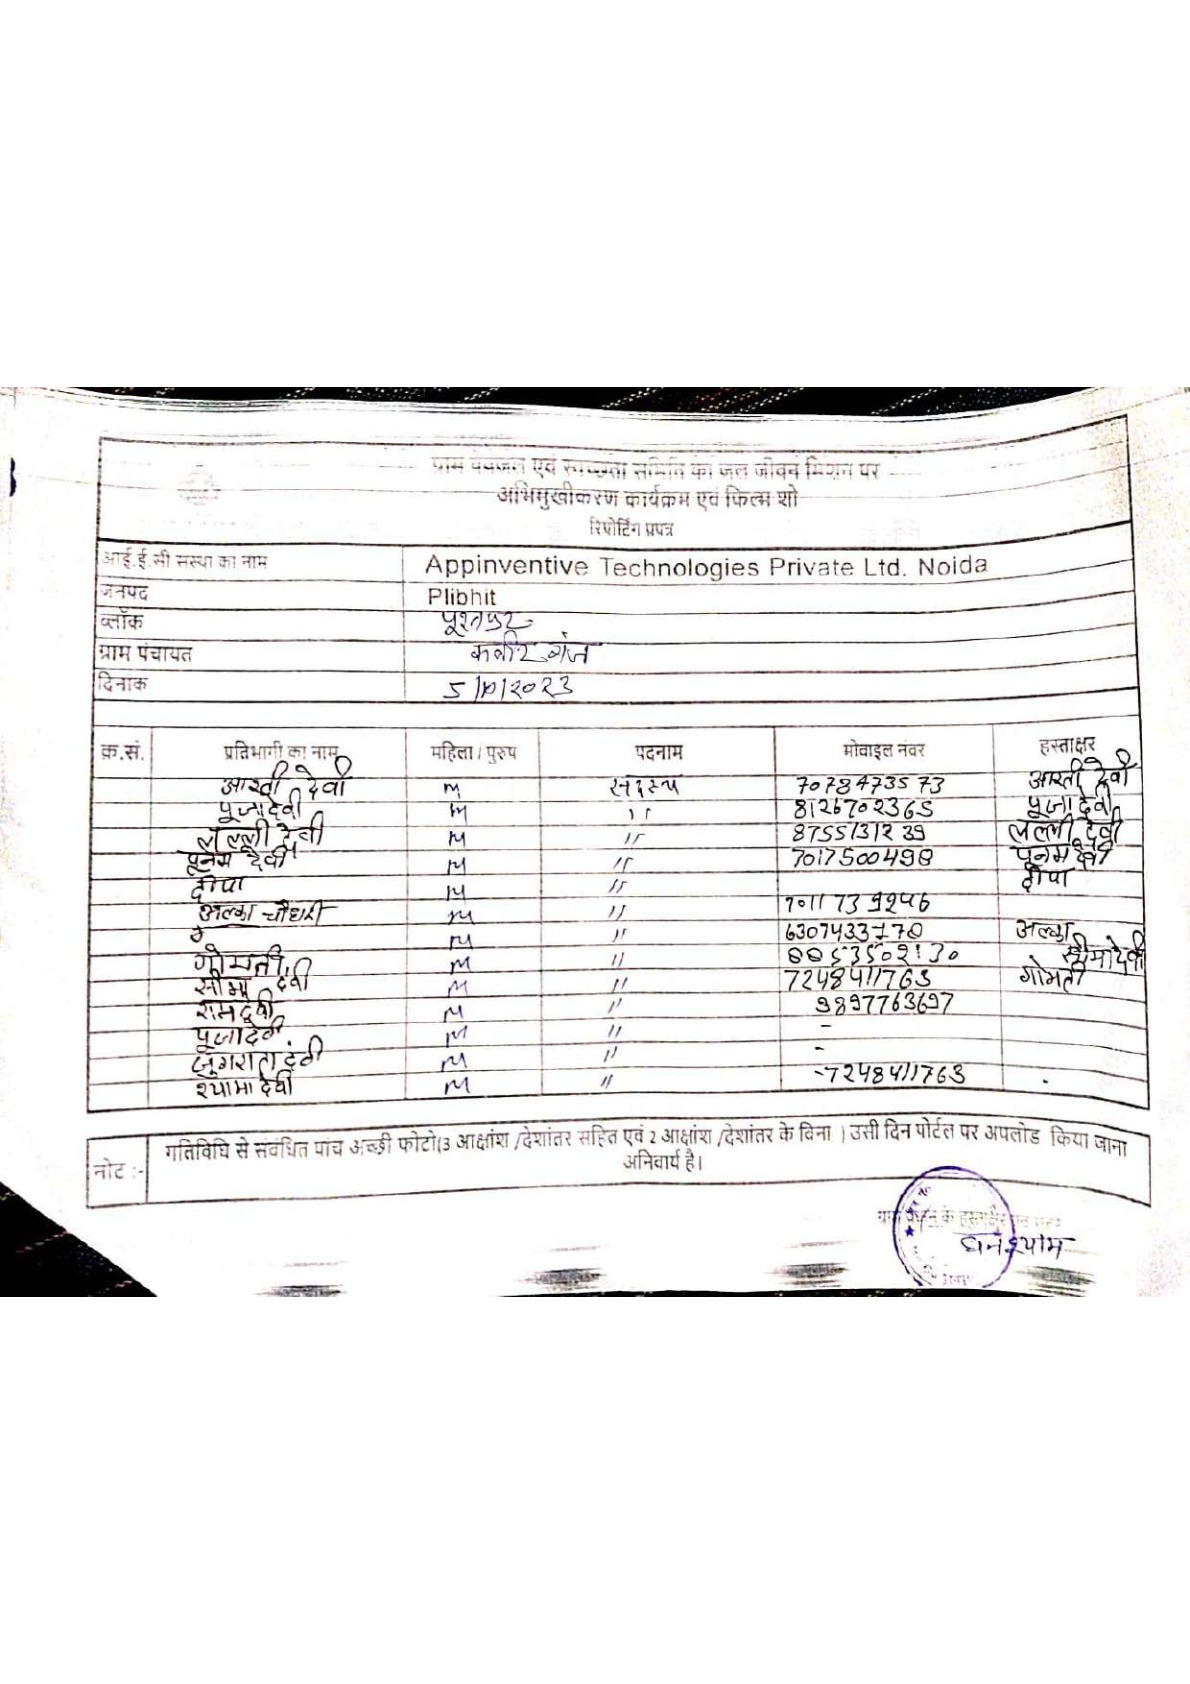 ग्राम पेयजल एवं स्वच्छता समिति का जल जीवन मिशन पर
अभिमुखीकरण कार्यक्रम एवं फिल्म शो
रिपोर्टिंग प्रपत्र
आई.ई.सी संस्था का नाम Appinventive Technologies Private Ltd. Noida
जनपद Plibhit
ब्लॉक
ग्राम पंचायत कबीरगंज
दिनांक 5/10/2023
क्र.सं. प्रतिभागी का नाम महिला / पुरुष पदनाम मोबाइल नंबर हस्ताक्षर
आरती देवी म सदस्य 7078473573 आरती देवी
पूजा देवी म '' 8126702365 पूजा देवी
लल्ली देवी म '' 8755131239 लल्ली देवी
पूनम देवी म '' 7017500498 पूनम देवी
दीपा म '' दीपा
अल्का चौधरी म '' 7011739246
म '' 6307433770 अल्का
गोमती म '' सीमा देवी
सीमा देवी म '' 7248411763 गोमती
रामदेवी म '' 9897763697
पूजा देवी म '' -
जुगराता देवी म '' -
श्यामा देवी म '' -7248411763 .
नोट :- गतिविधि से संबंधित पांच अच्छी फोटो(3 आक्षांश /देशांतर सहित एवं 2 आक्षांश /देशांतर के विना ) उसी दिन पोर्टल पर अपलोड किया जाना
अनिवार्य है।
ग्राम प्रधान के हस्ताक्षर
घनश्याम